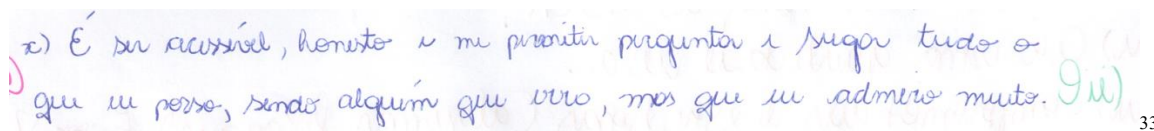 x) É ser acessível, honesto e me permitir perguntar e sugar tudo o
que eu posso, sendo alguém que erro, mas que eu admiro muito. 9 ii)
33